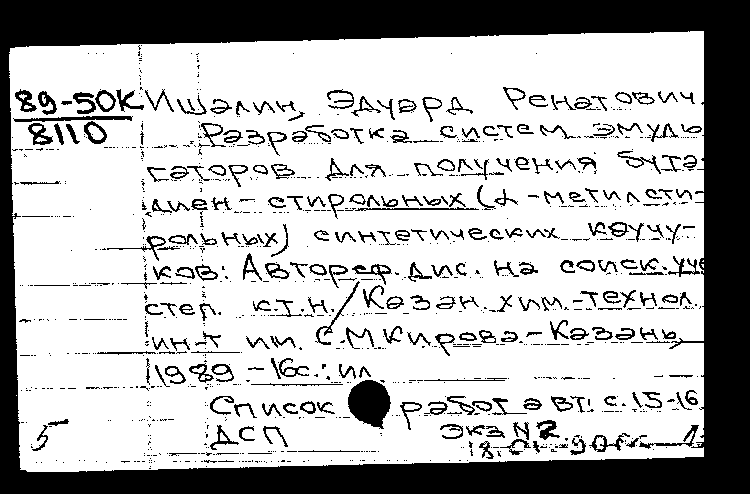 89-50К Ишалин, Эдуард Ренатович.
8110 Разработка систем эмуль
гаторов для получения бута-
диен-стирольных (α-метилсти-
рольных) синтетических каучу-
ков: Автореф. дис. на соиск. уче
степ. к.т.н. / Казан. хим.-технол.
ин-т им. С.М Кирова - Казань,
1989 - 16с.: ил
Список работ авт: с. 15-16
5 ДСП экз N 2
18.01